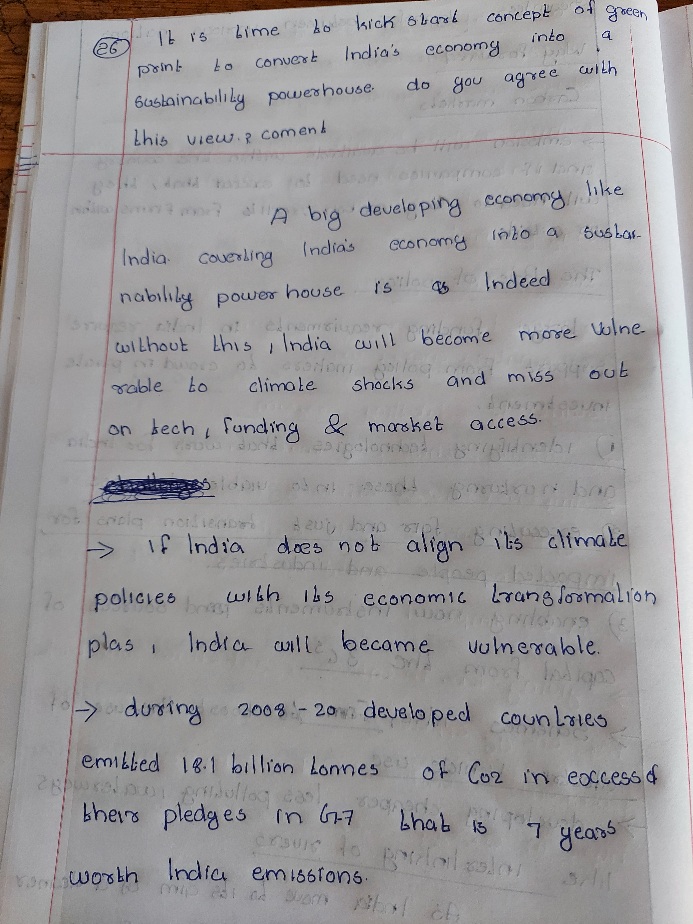 26 It is time to kick start concept of green
print to convert India's economy into a
sustainability powerhouse. do you agree with
this view.? coment
A big developing economy like
India. coverting India's economy into a sustai-
nability power house is as Indeed
without this, India will become more vulne
rable to climate shocks and miss out
on tech, funding & market access.
→ if India does not align its climate
policies with its economic transformation
plas, India will became vulnerable.
→ during 2008-20 developed countries
emitted 18.1 billion tonnes of Co2 in excess of
theirs pledges in G-7 that is 7 years
worth India emissions.